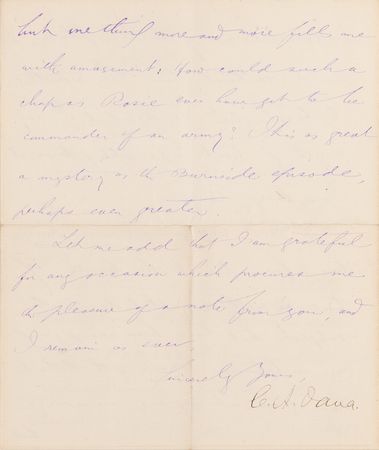 one thing more and more fills me
with amazement: How could such a
chap as Rosie ever have got to be
commander of an army? This is as great
a mystery as the Burnside episode,
perhaps even greater.
Let me add that I am grateful
for any occasion which procures me
the pleasure of a note from you, and
I remain as ever,
Sincerely Yours,
C. A. Dana.